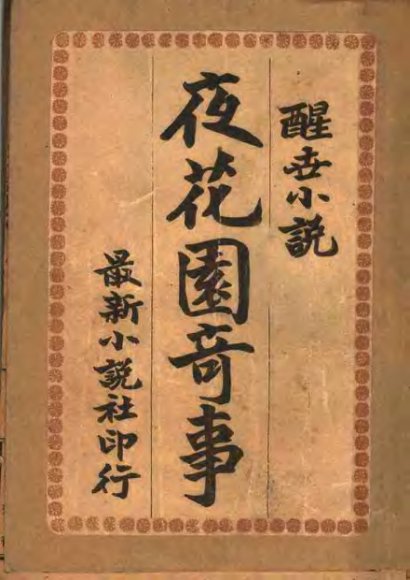 醒世小説
夜花園奇事
最新小説社印行